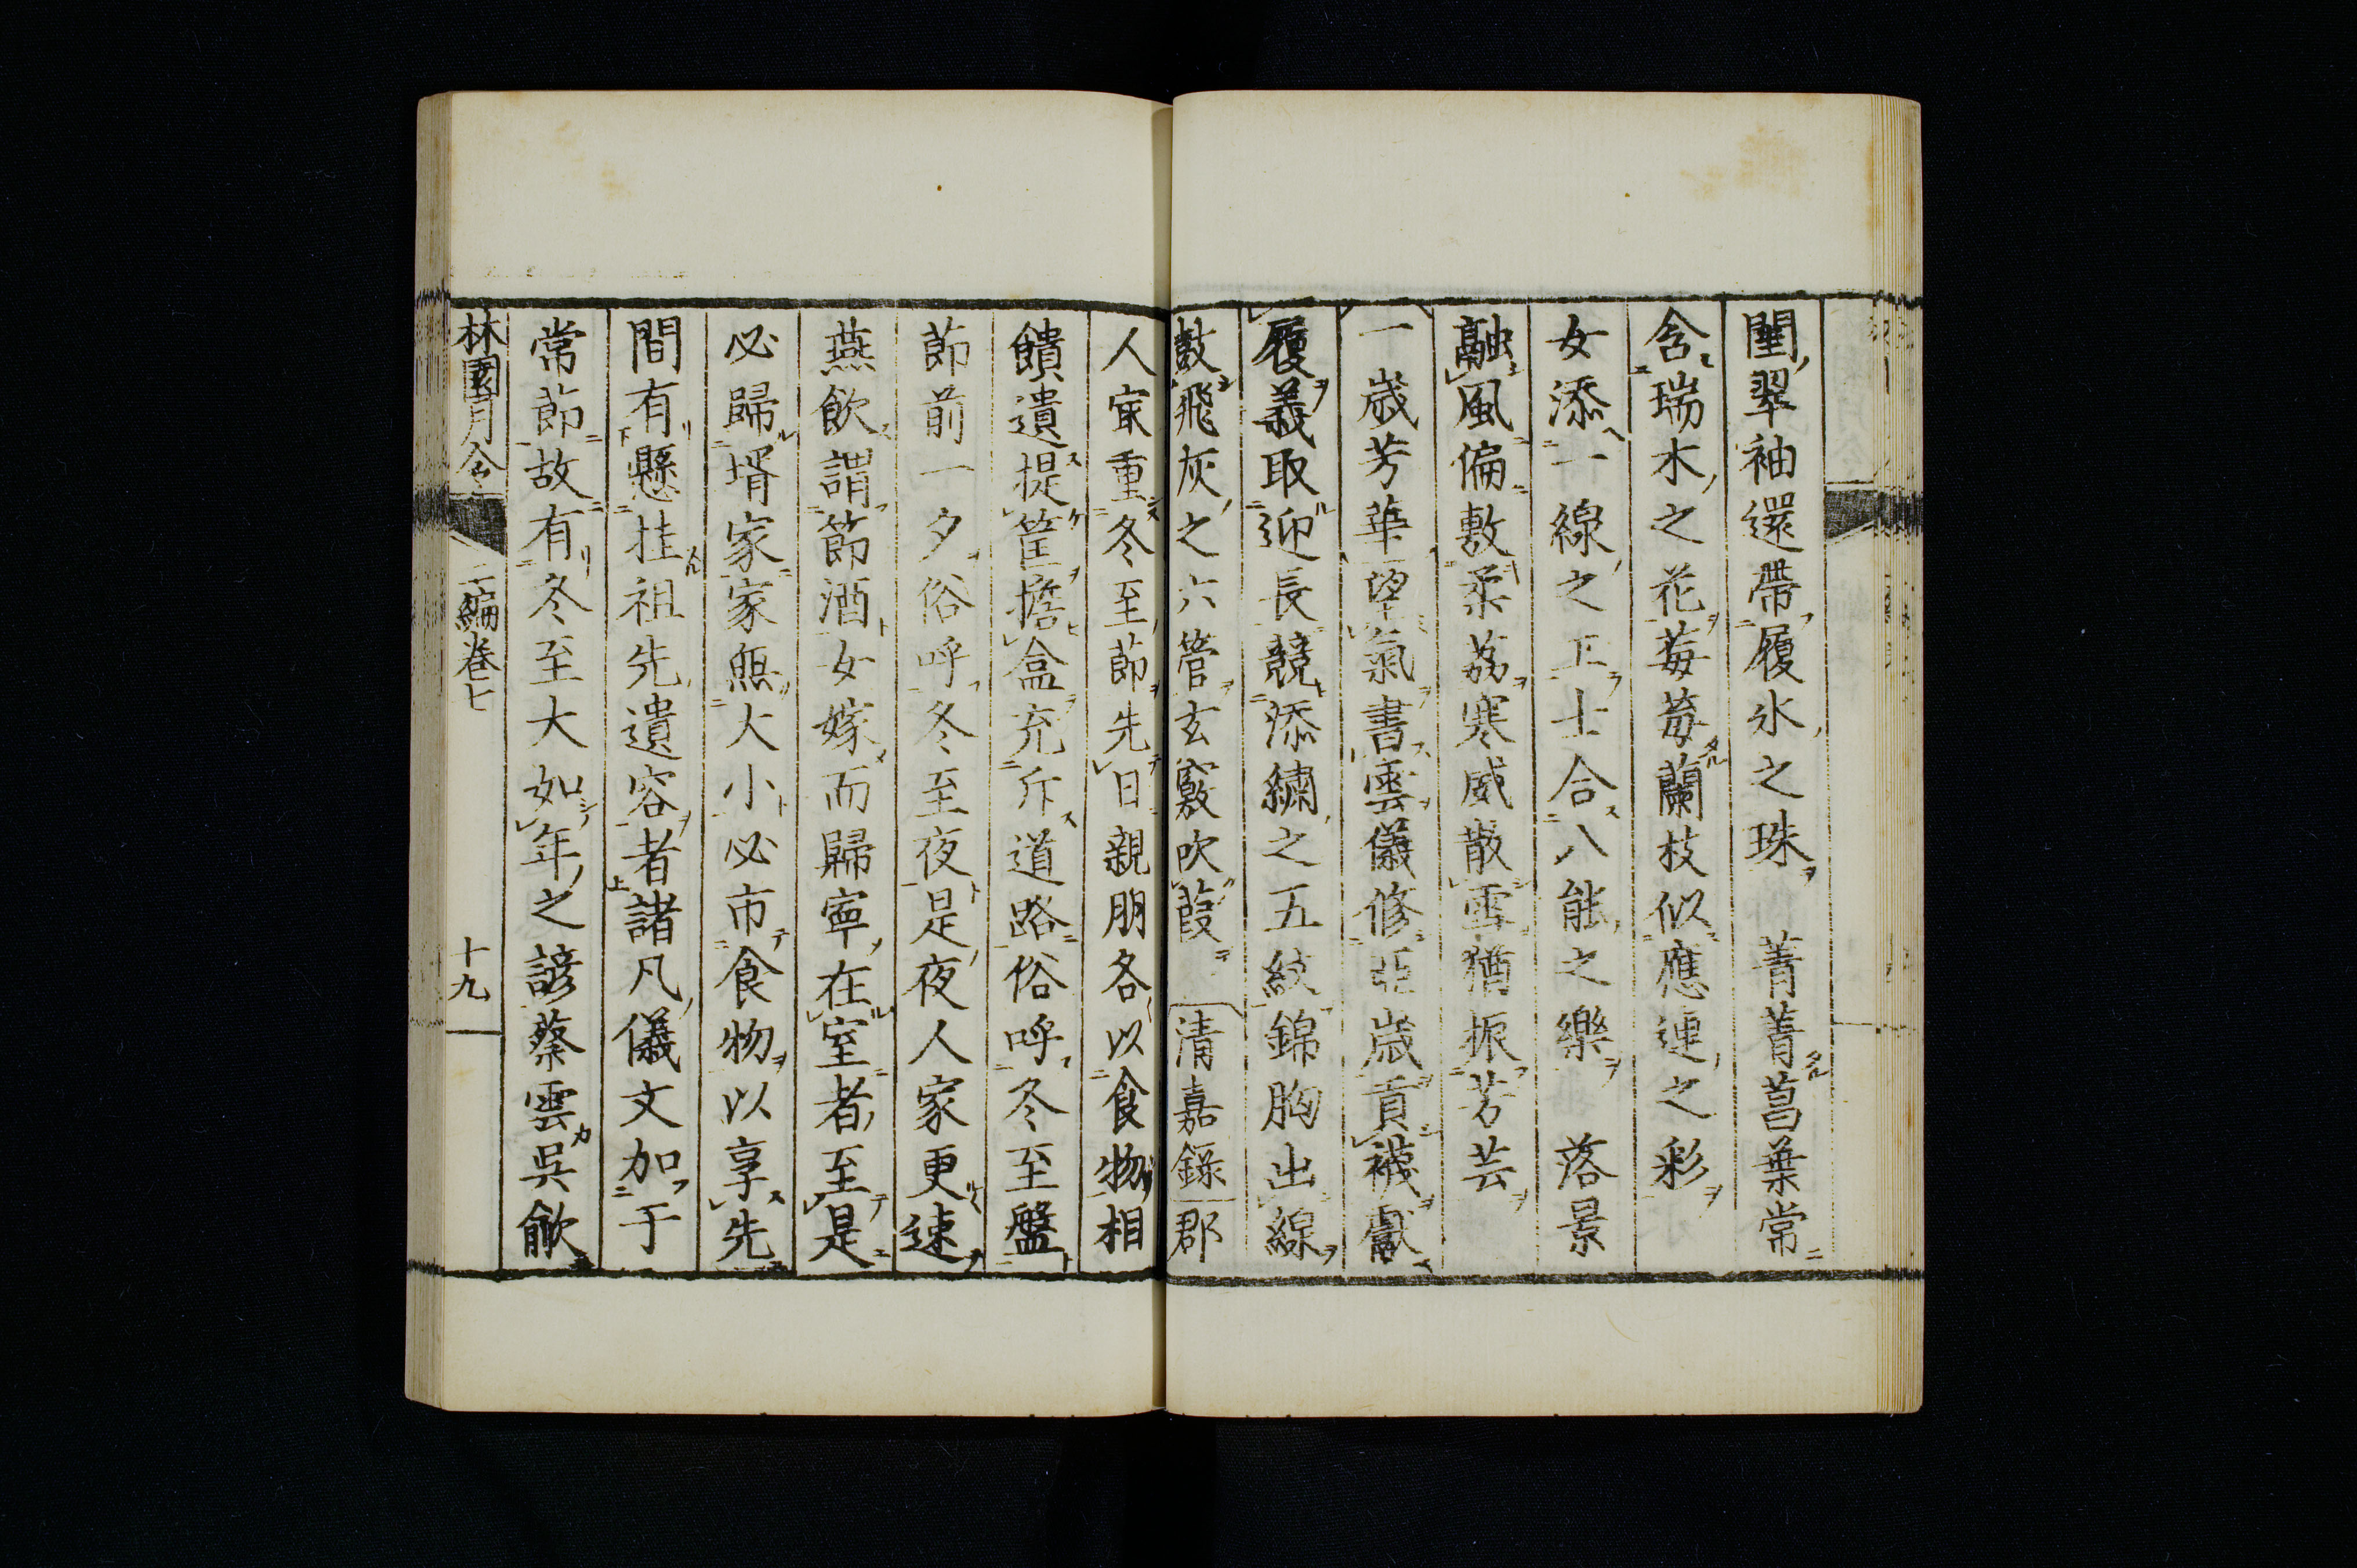 闈翠袖還帶履氷之珠 菁菁菖葉常
含瑞木之花莓莓蘭枝似應連之彩
女添一線之工士合八能之樂 落景
融風偏敷柔荔寒威散雪猶振芳芸
一歲芳華望氣書雲儀修亞歲貢襪獻
履義取迎長競添繡之五紋錦胸出線
鼓飛灰之六管玄竅吹葭 清嘉錄郡
人家重冬至節先日親朋各以食物相
饋遺提筐擔盒充斥道路俗呼冬至盤
節前一夕俗呼冬至夜是夜人家更速
燕飲謂節酒女嫁而歸寧在室者至是
必歸壻家家無大小必市食物以享先
間有懸挂祖先遺容者諸凡儀文加于
常節故有冬至大如年之諺蔡雲吳歈
林園月令 二編卷七 十九